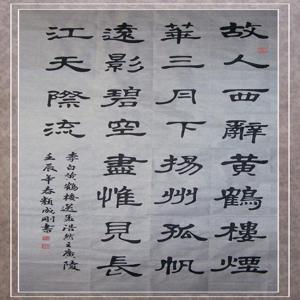 故人西辭黃鶴樓煙
華三月下揚州孤帆
遠影碧空盡惟見長
江天際流
李白黄鶴樓送孟浩然之廣陵
壬辰年春成剛書